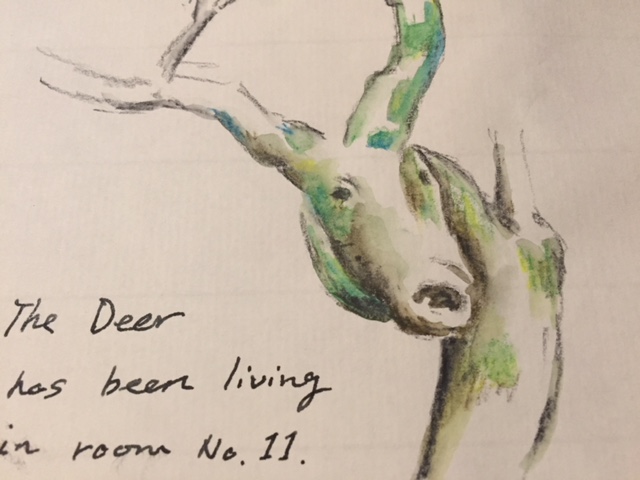 The Deer
has been living
in room No. 11.